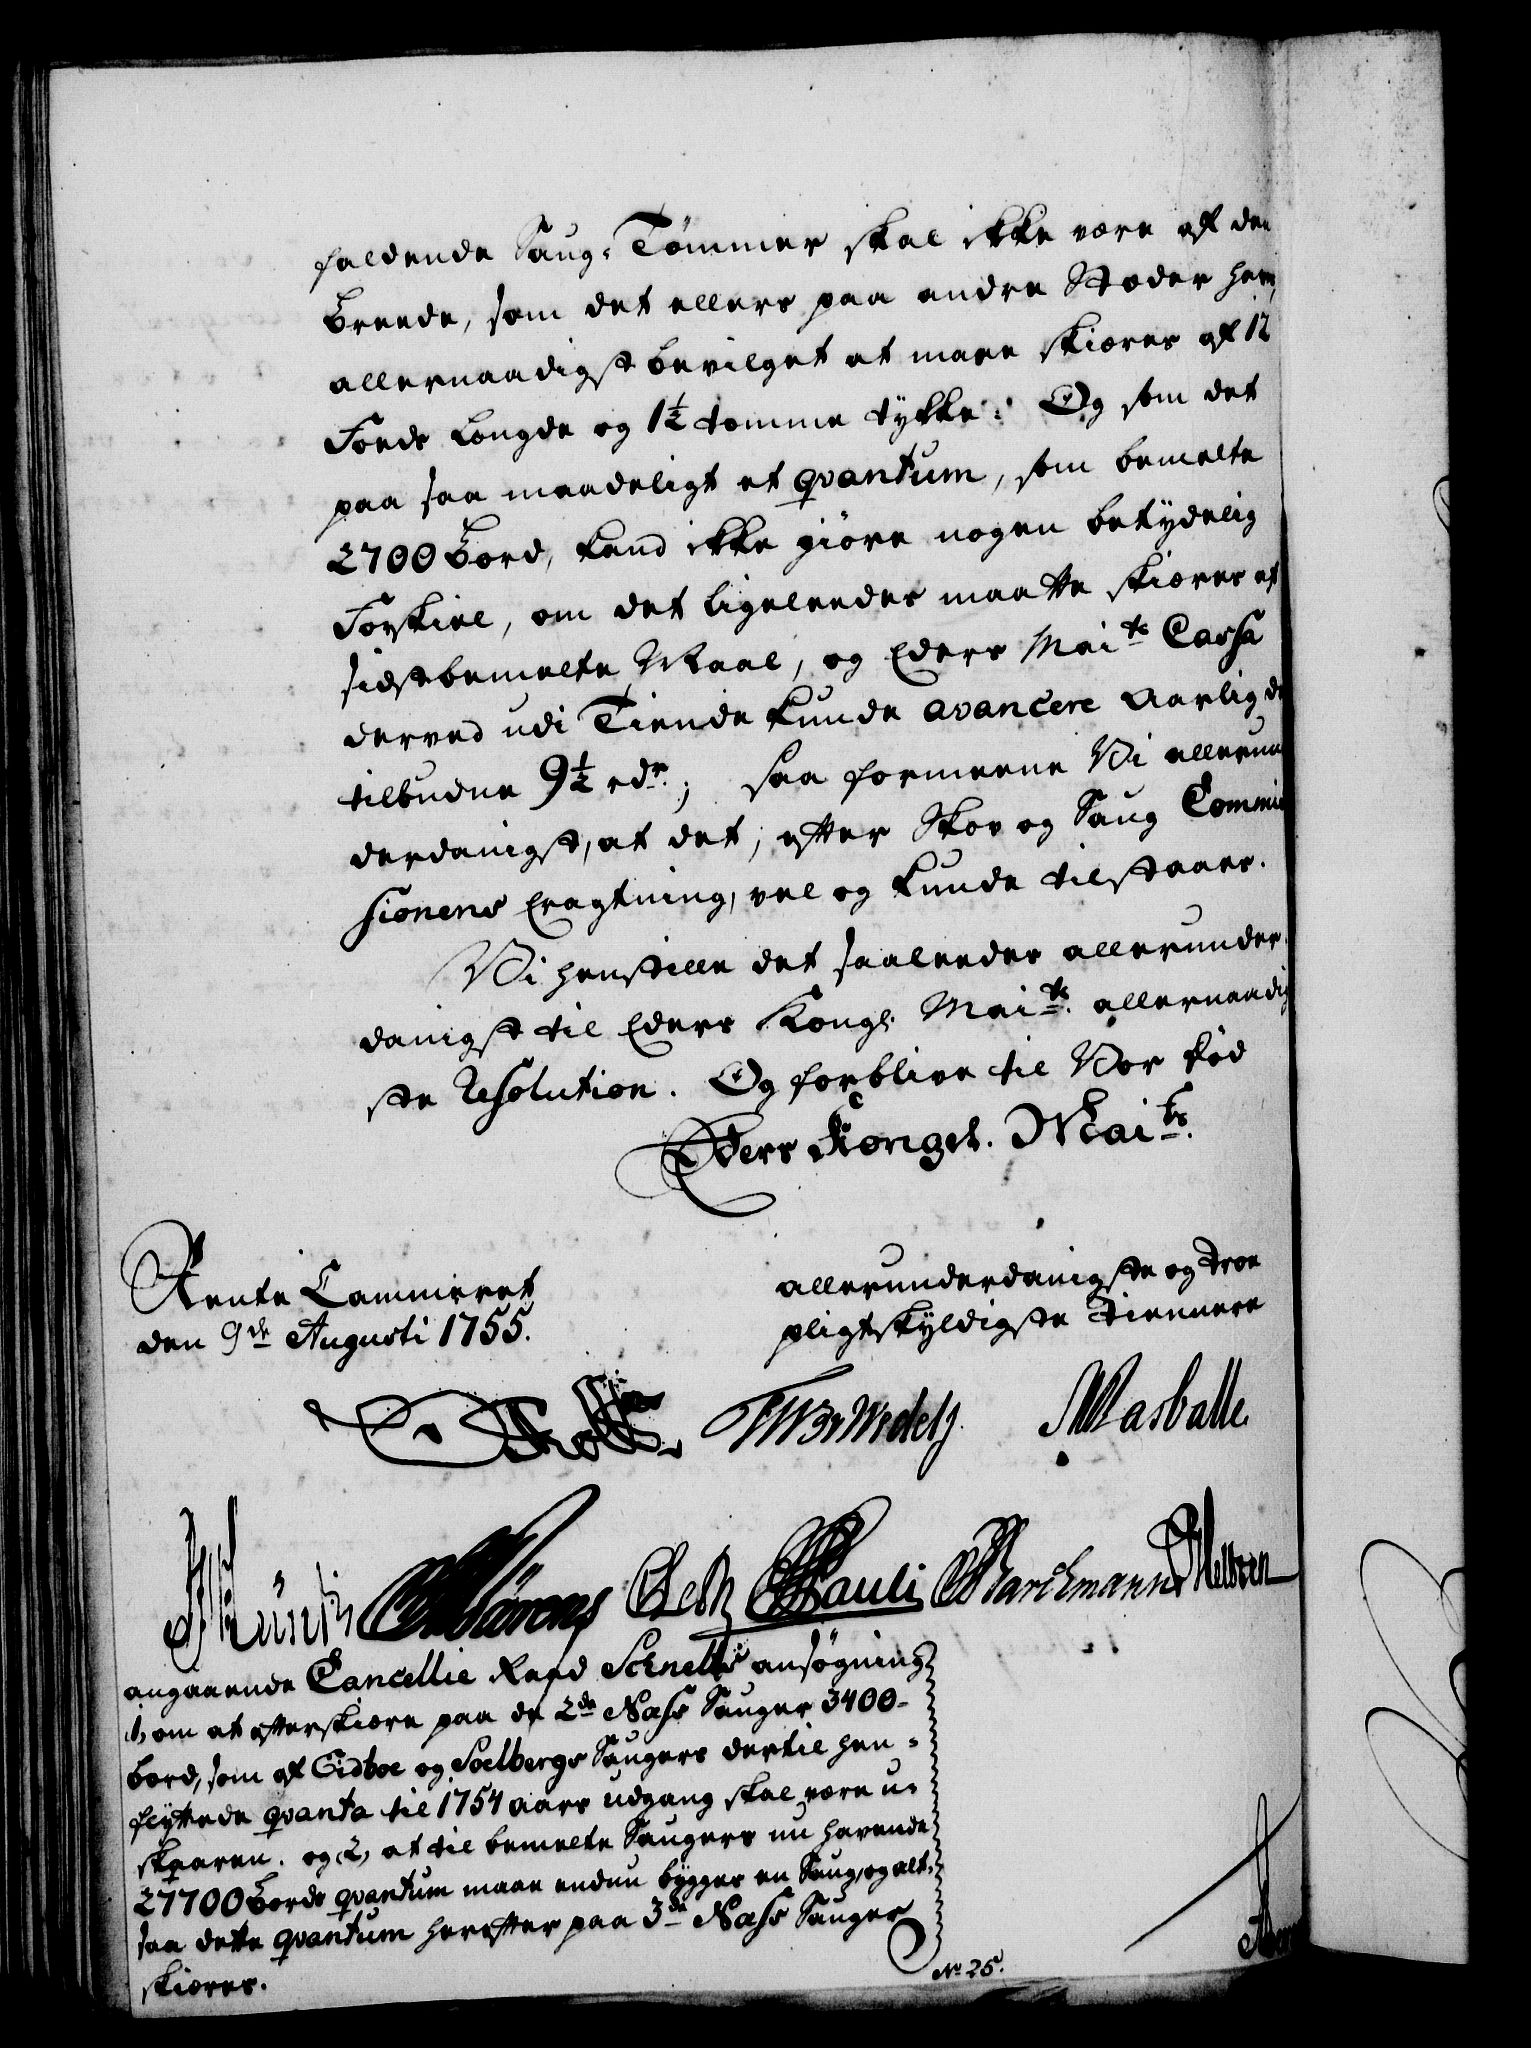 faldende Saug-Tømmer skal ikke være af den
Brede, som det ellers paa andre Stæder har,
allernaadigst bevilget at maae skiæres af 12
Foeds Længde og 1½ tomme tykke: Og som det
paa saa maadeligt et qvantum, som bemelte
2700 Bord, kand ikke giøre nogen betydelig
Forskiel, om det ligeleedes maatte skiæres af
sidstbemelte Maal, og Eders Maits Cassa
derved udi Tiende kunde avancere Aarlig de
tilbudne 9½ rdr.; saa formeene Vi allerun
derdanigst, at det, efter Skov og Saug Commis
sionens Eragtning, vel og kunde tilstaaes.
Vi henstille det saaleedes allerunder
danigst til Eders Kongl. Maits. allernaadig
ste Resolution. Og forblive til Vor Død
Eders Kongel. Maits.
Rente Cammeret
den 9de Augusti 1755.
allerunderdanigste og troe
pligtskyldigste Tiennere
Holst Wedelj Wasballe
Küntz Pauli Barchmann
angaaende Cancellie Raad Schnells ansøgning
1, om at efterskiære paa de 2de Næss Sauger 3400-
bord, som af Eidboe og Soelbergs Saugers dertil hen-
flyttede qvanta til 1754 aars udgang skal være u-
skaaren. og 2, at til bemelte Saugers nu havende
27700 Bords qvantum maae endnu bygges en Saug, og alt-
saa dette qvantum herefter paa 3de Næss Sauger
skiæres.
No 25.